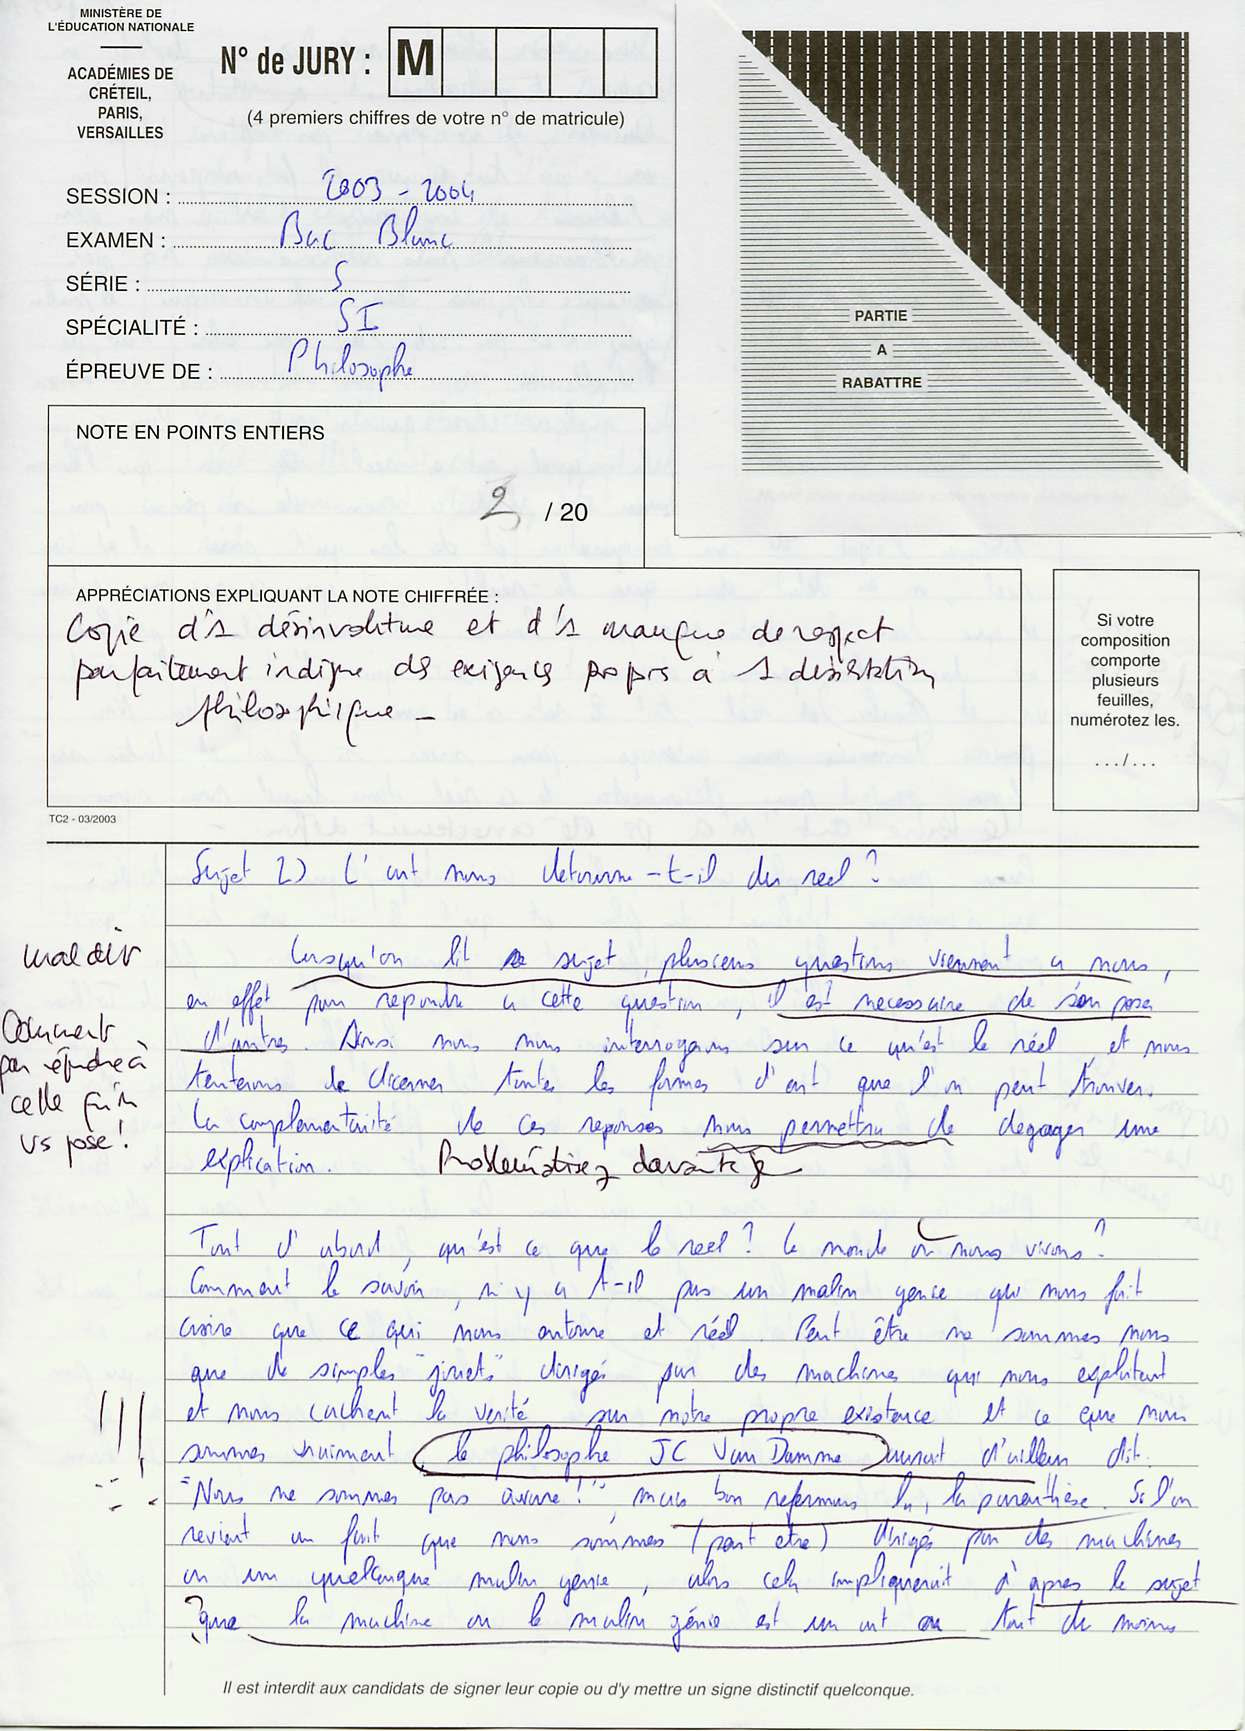 MINISTÈRE DE
L'ÉDUCATION NATIONALE
ACADÉMIES DE
CRÉTEIL,
PARIS,
VERSAILLES
N° de JURY : M
(4 premiers chiffres de votre n° de matricule)
SESSION : 2003 - 2004
EXAMEN : Bac Blanc
SÉRIE : S
SPÉCIALITÉ : SI
ÉPREUVE DE : Philosophe
PARTIE
A
RABATTRE
NOTE EN POINTS ENTIERS
2 / 20
APPRÉCIATIONS EXPLIQUANT LA NOTE CHIFFRÉE :
Copie d'1 désinvolture et d'1 manque de respect
parfaitement indigne des exigences propres à 1 dissertation
philosophique -
Si votre
composition
comporte
plusieurs
feuilles,
numérotez les.
. . . / . . .
TC2 - 03/2003
Sujet 2) L'art nous detourne-t-il du reel ?
mal dit
Lorsqu'on lit le sujet, plusieurs questions viennent a nous,
en effet pour repondre a cette question, il est necessaire de s'en posé
d'autres. Ainsi nous nous interrogeons sur ce qu'est le réel, et nous
Comment
pas répondre à
celle qu'on
vs pose !
tenterons de dicerner toutes les formes d'art que l'on peut trouver.
La complementarité de ces reponses nous permettra de degager une
explication. Problématisez davantage
Tout d'abord, qu'est ce que le reel ? Le monde où nous vivons ?
Comment le savoir, n'y a t-il pas un malin genie qui nous fait
croire que ce qui nous entoure et réel. Peut être ne sommes nous
que de simples "jouets" dirigés par des machines qui nous exploitent
et nous cachent la verité sur notre propre existence et ce que nous
!!!
sommes vraiment, le philosophe JC Van Damme aurait d'ailleur dit.
"Nous ne sommes pas aware !" mais bon refermons la, la parenthèse. Si l'on
revient au fait que nous sommes (peut etre) dirigés par des machines
ou un quelconque malin genie, alors cela impliquerait d'apres le sujet
? que la machine ou le malin génie est un art ou tout du moins
Il est interdit aux candidats de signer leur copie ou d'y mettre un signe distinctif quelconque.